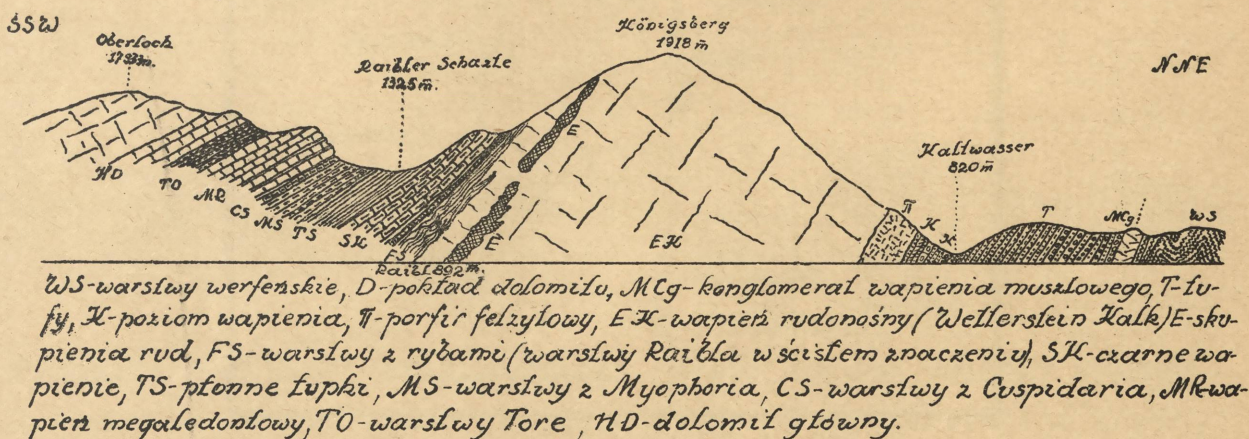 SSW
Oberloch
1793m.
Raibler Scharte
1325 m.
Königsberg
1918 m
NNE
Kaltwasser
820 m
HD
TO
MK
CS
MS
TS
SK
FS
E
E
EK
π
K
K
T
MCg
WS
Raibl 892 m.
WS-warstwy werfeńskie, D-pokład dolomitu, MCg-konglomerat wapienia muszlowego, T-tu-
fy, K-poziom wapienia, π-porfir felzytowy, EK-wapień rudonośny (Wetterstein Kalk) E-sku-
pienia rud, FS-warstwy z rybami (warstwy Raibla w ścisłem znaczeniu), SK-czarne wa-
pienie, TS-płonne łupki, MS-warstwy z Myophoria, CS-warstwy z Cuspidaria, MK-wa-
pień megalodontowy, TO-warstwy Tore, HD-dolomit główny.